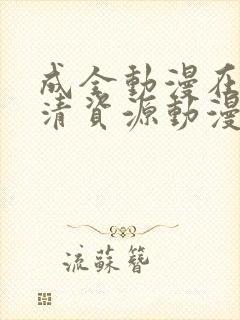 成全動漫在
清資源動漫
流蘇簪